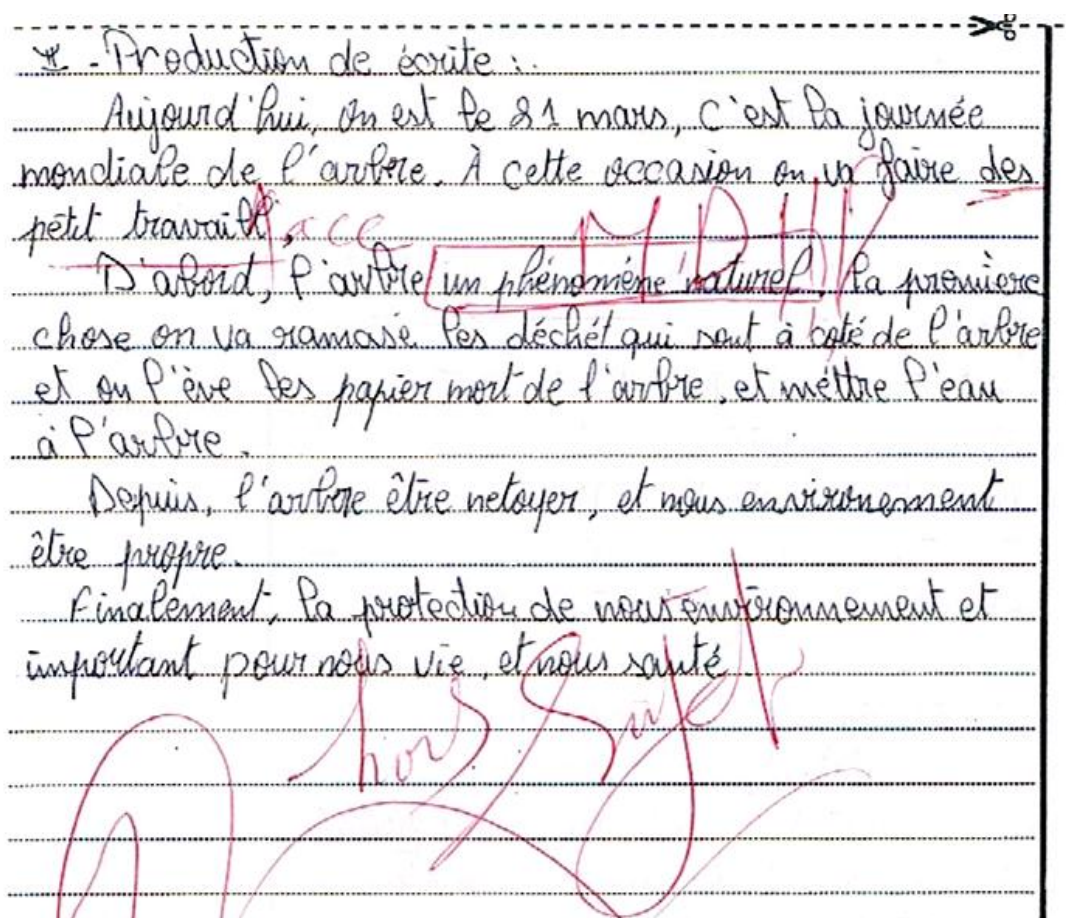 II - Production de écrite :
Aujourd'hui, on est le 21 mars, c'est la journée
mondiale de l'arbre. À cette occasion on va faire des
petit travaill, acc
D'abord, l'arbre un phénoméne naturel. la première
chose on va ramasé les déchét qui sont à coté de l'arbre
et on l'ève les papier mort de l'arbre, et méttre l'eau
à l'arbre.
Depuis, l'arbre être netoyer, et nous environement
être propre.
Finalement, la protection de nous environnement et
important pour nous vie, et nous santé.
hors Sujet